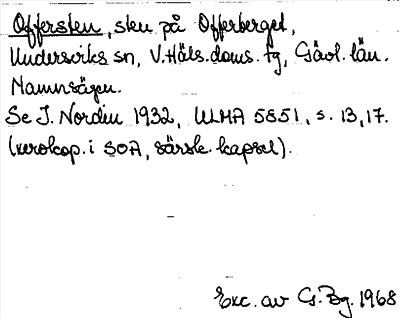 Offersten, sten på Offerberget,
Undersviks sn, V. Häls. doms. tg, Gävl. län.
Namnsägen.
Se J. Nordin 1932, ULMA 5851, s. 13, 17.
(xerokop. i SOA, särsk. kapsel).
Exc. av G. Bg. 1968